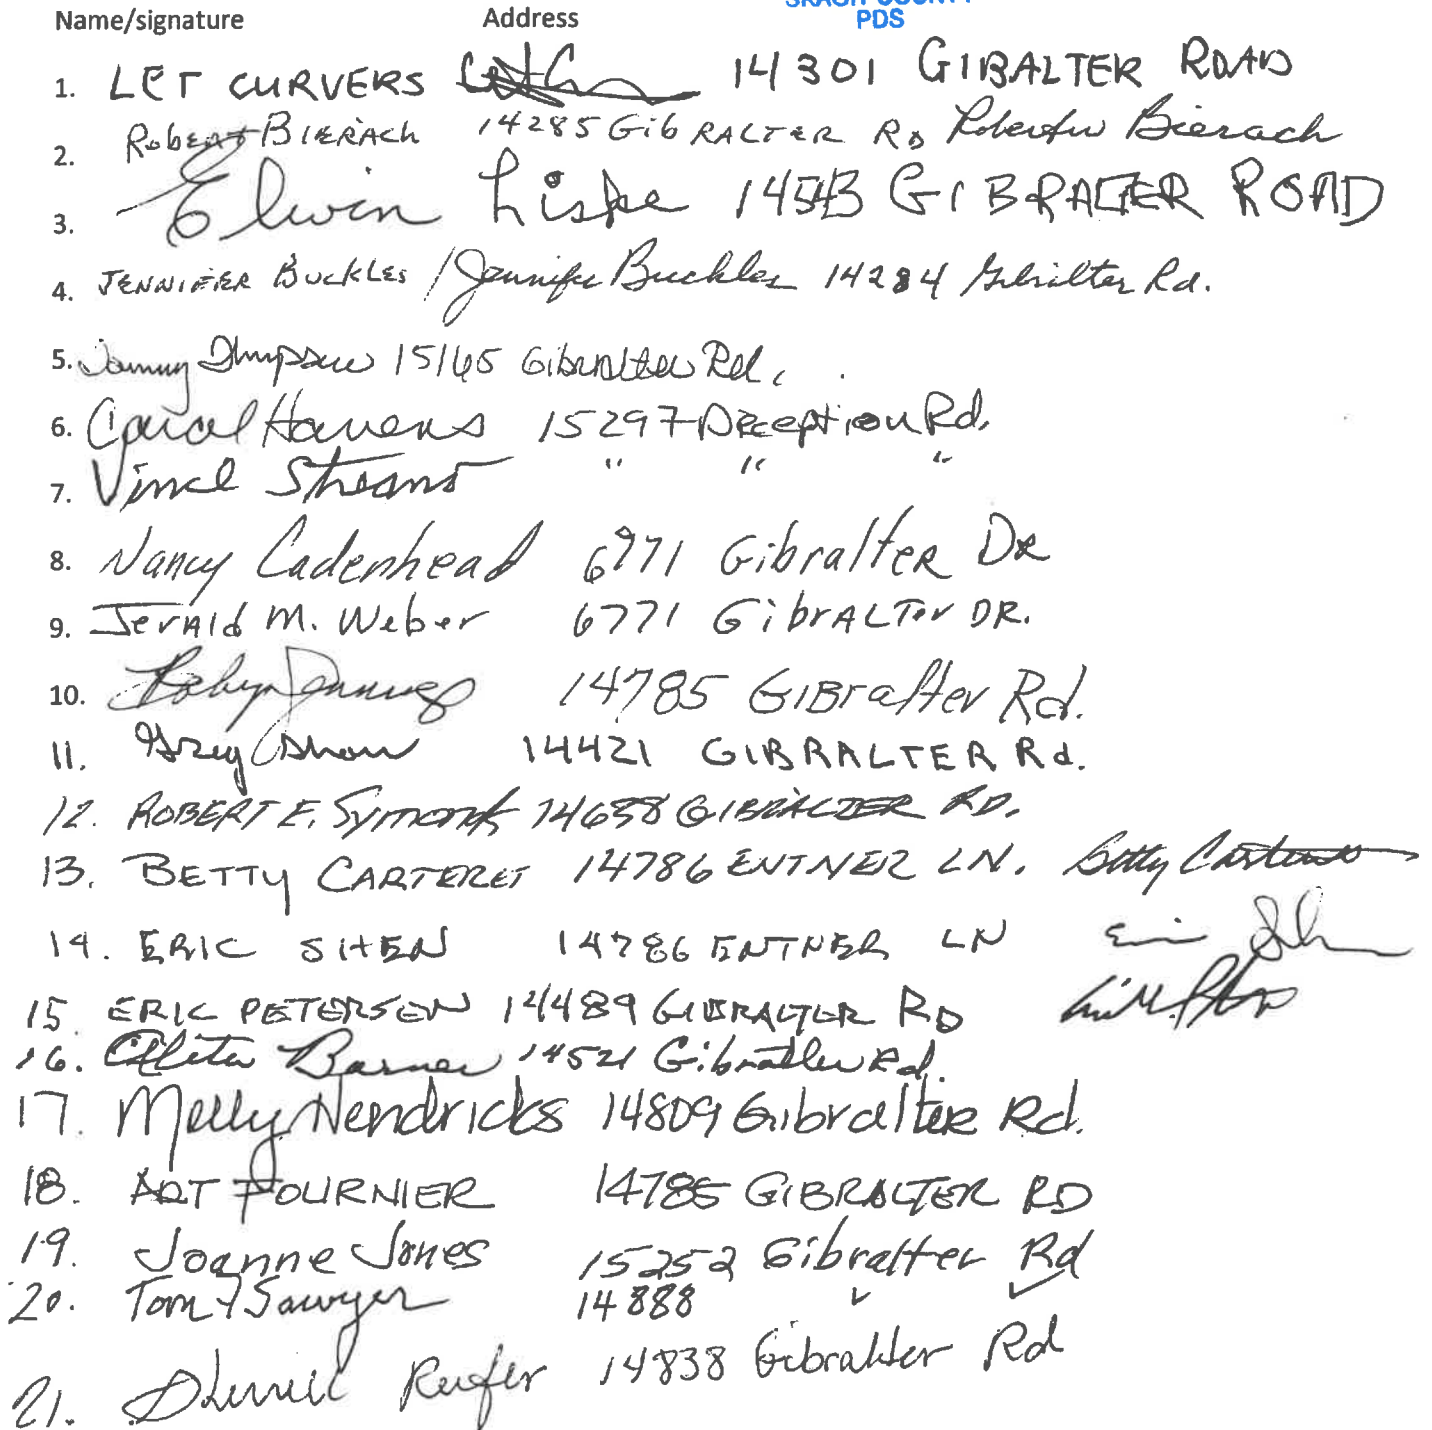 SKAGIT COUNTY
Name/signature Address PDS
1. LET CURVERS 14301 GIBALTER ROAD
2. Robert BIERACH 14285 GibRALTER RD Bierach
3. Elwin Liske GIBRALTER ROAD
4. JENNIFER BUCKLES / Jennifer Buckles 14284 Gibralter Rd.
5. 15165 Gibralter Rd.
6. Carol Havens 15297 Deception Rd.
7. Vince " " "
8. Nancy Cadenhead 6771 Gibralter DR
9. JerAld M. Weber 6771 GibrALTer DR.
10. 14785 GIBralter Rd.
11. Greg Shaw 14421 GIBRALTER Rd.
12. ROBERT E. Symonds GIBRALTER RD.
13. BETTY CARTERET 14786 ENTNER LN. Betty Carteret
14. ERIC SHEN 14786 ENTNER LN
15. ERIC PETERSEN 14489 GIBRALTER RD
16. 14521 Gibralter Rd.
17. Melly Hendricks 14809 Gibralter Rd.
18. ART FOURNIER 14785 GIBRALTER RD
19. Joanne Jones 15252 Gibralter Rd
20. Tom Sawyer 14888
21. 14838 Gibralter Rd